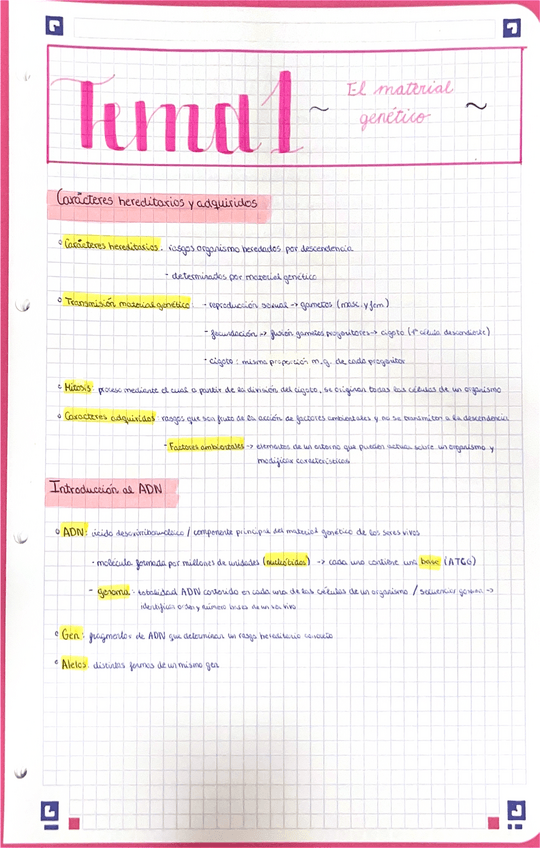 Tema 1
~ El material ~
genético
Carácteres hereditarios y adquiridos
Carácteres hereditarios: rasgos organismo heredados por descendencia
- determinados por material genético
Transmisión material genético: - reproducción sexual -> gametos (masc. y fem)
- fecundación -> fusión gametos progenitores -> cigoto (1ª célula descendiente)
- cigoto: misma proporción m.g. de cada progenitor
Mitosis: proceso mediante el cual a partir de la división del cigoto, se originan todas las células de un organismo
Caracteres adquiridos: rasgos que son fruto de la acción de factores ambientales y no se transmiten a la descendencia
- Factores ambientales -> elementos de un entorno que pueden actuar sobre un organismo y
modificar características
Introducción al ADN
ADN: ácido / componente principal del material genético de los seres vivos
- molécula formada por millones de unidades (nucleótidos) -> cada uno contiene una base (ATGC)
- genoma: totalidad ADN contenido en cada una de las células de un organismo / secuenciar genoma ->
identificar orden y número bases de un ser vivo
Gen: fragmentos de ADN que determinan un rasgo hereditario concreto
Alelos: distintas formas de un mismo gen